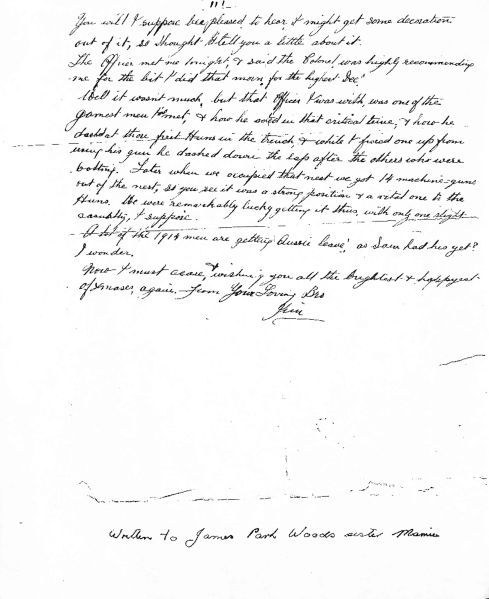 11.
You will I suppose be pleased to hear, I might get some decoration
out of it, so thought I'd tell you a little about it.
The Officer met me tonight, & said the Colonel was highly recommending
me for the bit I did that morn, for the highest Dec.
Well it wasnt much, but that Officer I was with was one of the
gamest men I've met, & how he acted in that critical time, & how he
dashed at those first Huns in the trench, & while I fixed one up from
using his gun he dashed down the sap after the others who were
bolting. Later when we occupied that nest we got 14 machine-guns
out of the nest, so you see it was a strong position & a vital one to the
Huns. We were remarkably lucky getting it thus, with only one slight
casualty, I suppose.
A lot of the 1914 men are getting Aussie leave, as Sam had his yet?
I wonder.
Now I must cease, wishing you all the brightest & happyest
of Xmases, again. From Your Loving Bro
Jim
Written to James Park Woods sister Mamie